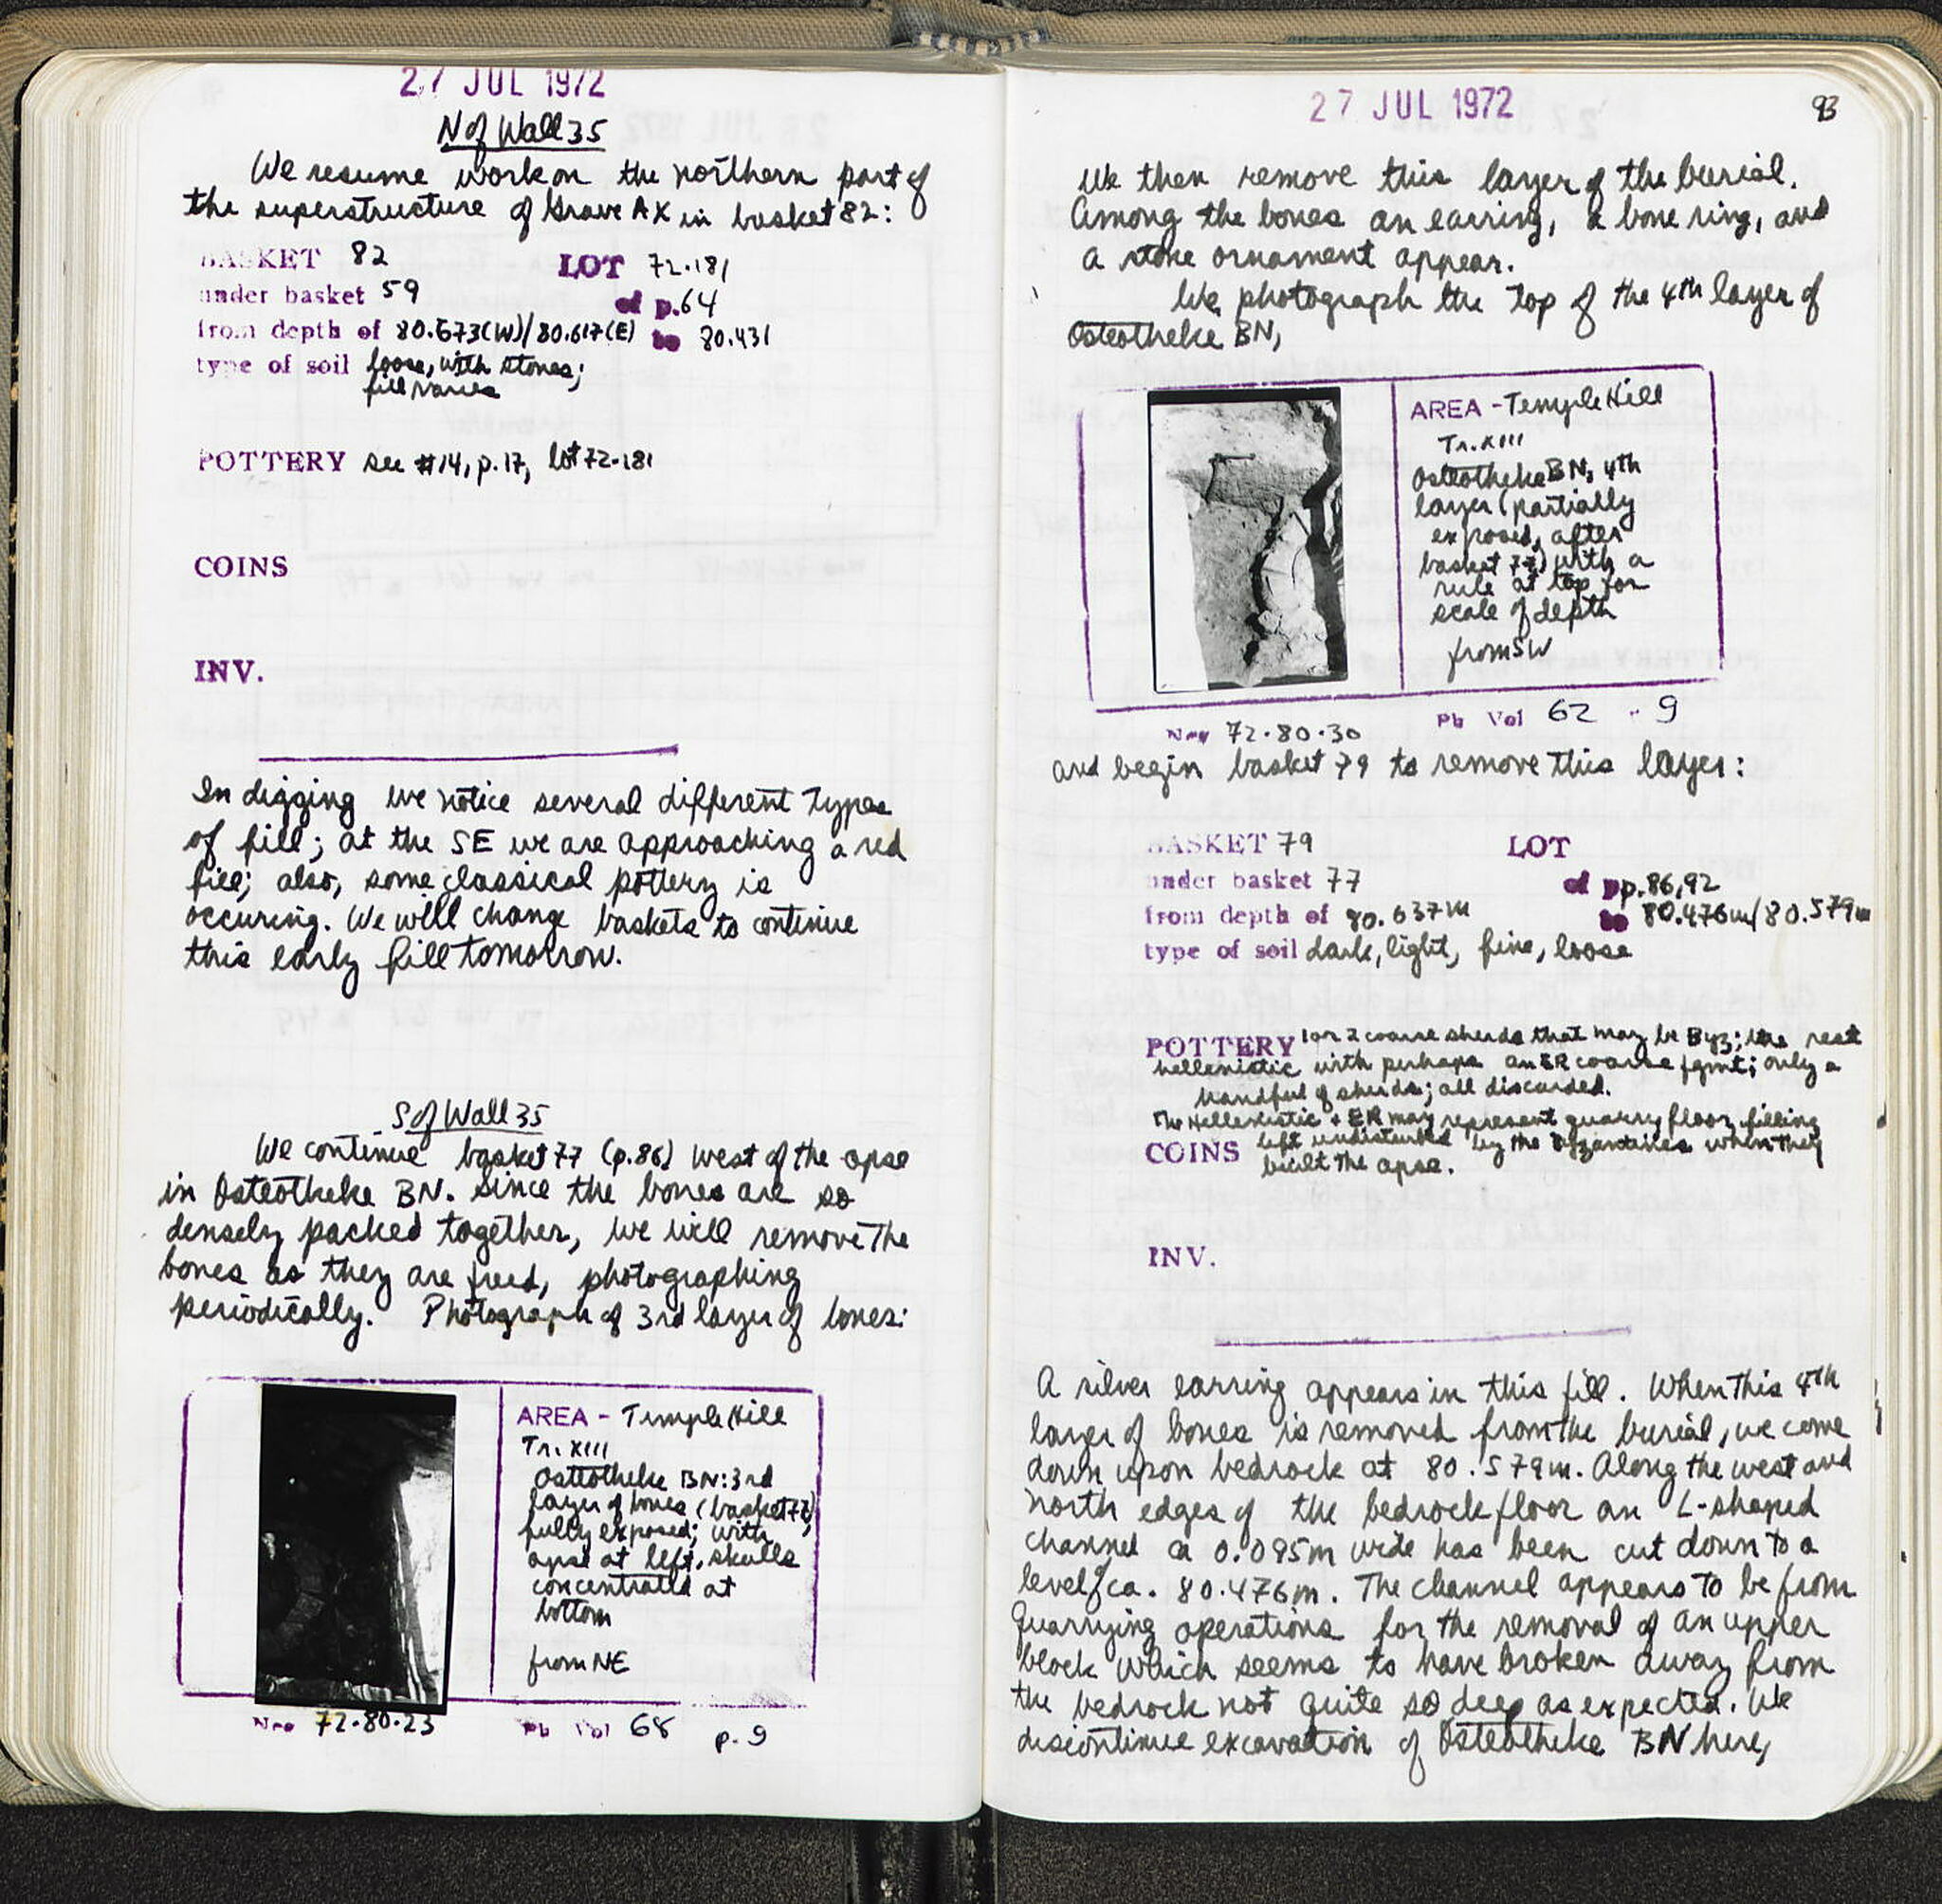 27 JUL 1972
N of Wall 35
We resume work on the northern part of
the superstructure of Grave AK in basket 82:
BASKET 82 LOT 72-181
under basket 59 of p. 64
from depth of 80.673(W)/80.617(E) to 80.431
type of soil loose, with stones;
fill varies
POTTERY see #14, p. 17, lot 72-181
COINS
INV.
In digging we notice several different types
of fill; at the SE we are approaching a red
fill; also, some classical pottery is
occuring. We will change baskets to continue
this early fill tomorrow.
S of Wall 35
We continue basket 77 (p. 86) west of the apse
in Osteotheke BN. Since the bones are so
densely packed together, we will remove the
bones as they are freed, photographing
periodically. Photograph of 3rd layer of bones:
AREA - Temple Hill
Tr. XIII
Osteotheke BN: 3rd
layer of bones (basket 77)
fully exposed; with
apse at left, skulls
concentrated at
bottom
from NE
Neg 72-80-23 Pb Vol 68 p. 9
27 JUL 1972 93
We then remove this layer of the burial.
Among the bones an earring, a bone ring, and
a stone ornament appear.
We photograph the top of the 4th layer of
Osteotheke BN,
AREA - Temple Hill
Tr. XIII
Osteotheke BN, 4th
layer (partially
exposed, after
basket 77) with a
rule at top for
scale of depth
from SW
Neg 72-80-30 Pb Vol 62 - 9
and begin basket 79 to remove this layer:
BASKET 79 LOT
under basket 77 of pp. 86, 92
from depth of 80.637m to 80.476m/80.579m
type of soil dark, light, fine, loose
POTTERY 1 or 2 coarse sherds that may be Byz; the rest
hellenistic with perhaps an ER coarse fgmt; only a
handful of sherds; all discarded.
The Hellenistic + ER may represent quarry floor filling
COINS left undisturbed by the Byzantines when they
built the apse.
INV.
A silver earring appears in this fill. When this 4th
layer of bones is removed from the burial, we come
down upon bedrock at 80.579m. Along the west and
north edges of the bedrock floor an L-shaped
channel ca 0.095m wide has been cut down to a
level of ca. 80.476m. The channel appears to be from
quarrying operations for the removal of an upper
block which seems to have broken away from
the bedrock not quite so deep as expected. We
discontinue excavation of Osteotheke BN here,